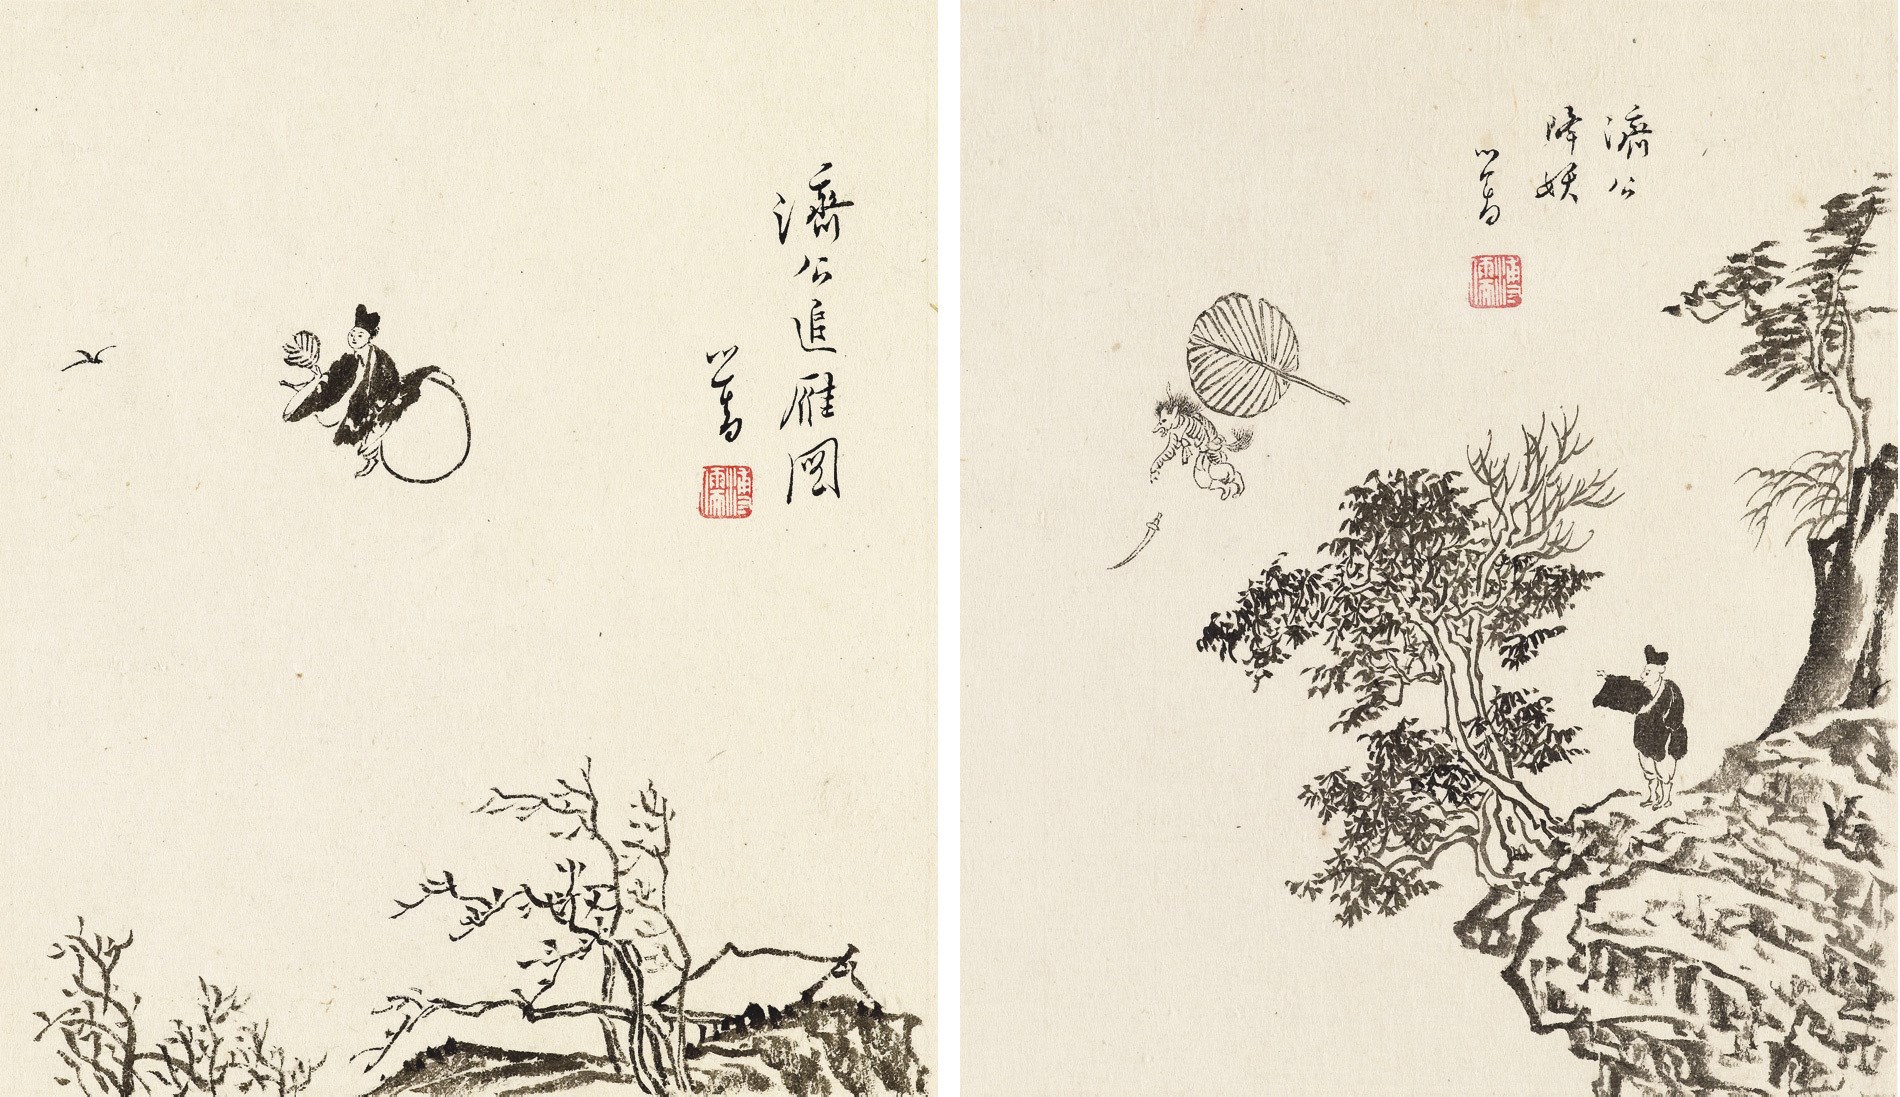 濟公追雁圖
心畬
濟公
降妖
心畬